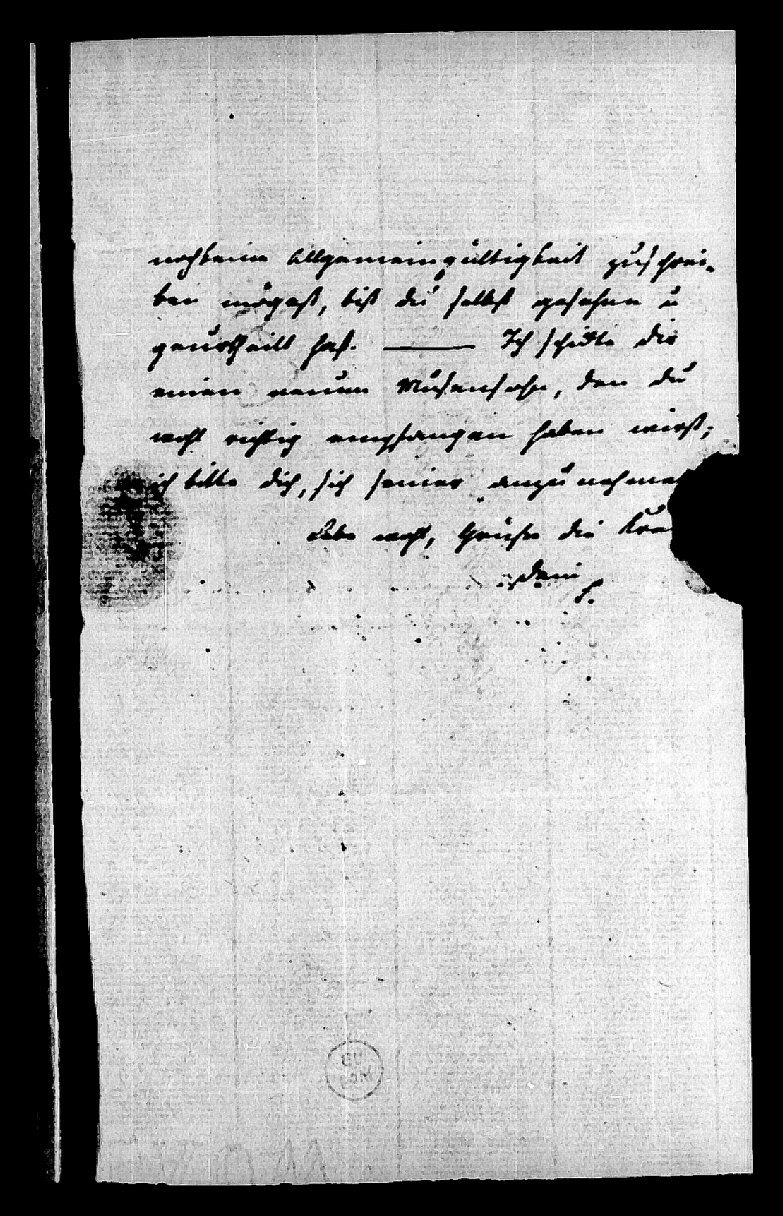 noch keine Allgemeingültigkeit zuschrei-
ben mögest, bist du selbst gesehen u
geurtheilt hast. ——— Ich schikte dir
einen neuen Musensohn, den du
wohl richtig empfangen haben wirst;
ich bitte dich, sich seiner anzunehmen
Lebe wohl, Grüsse die
Dein